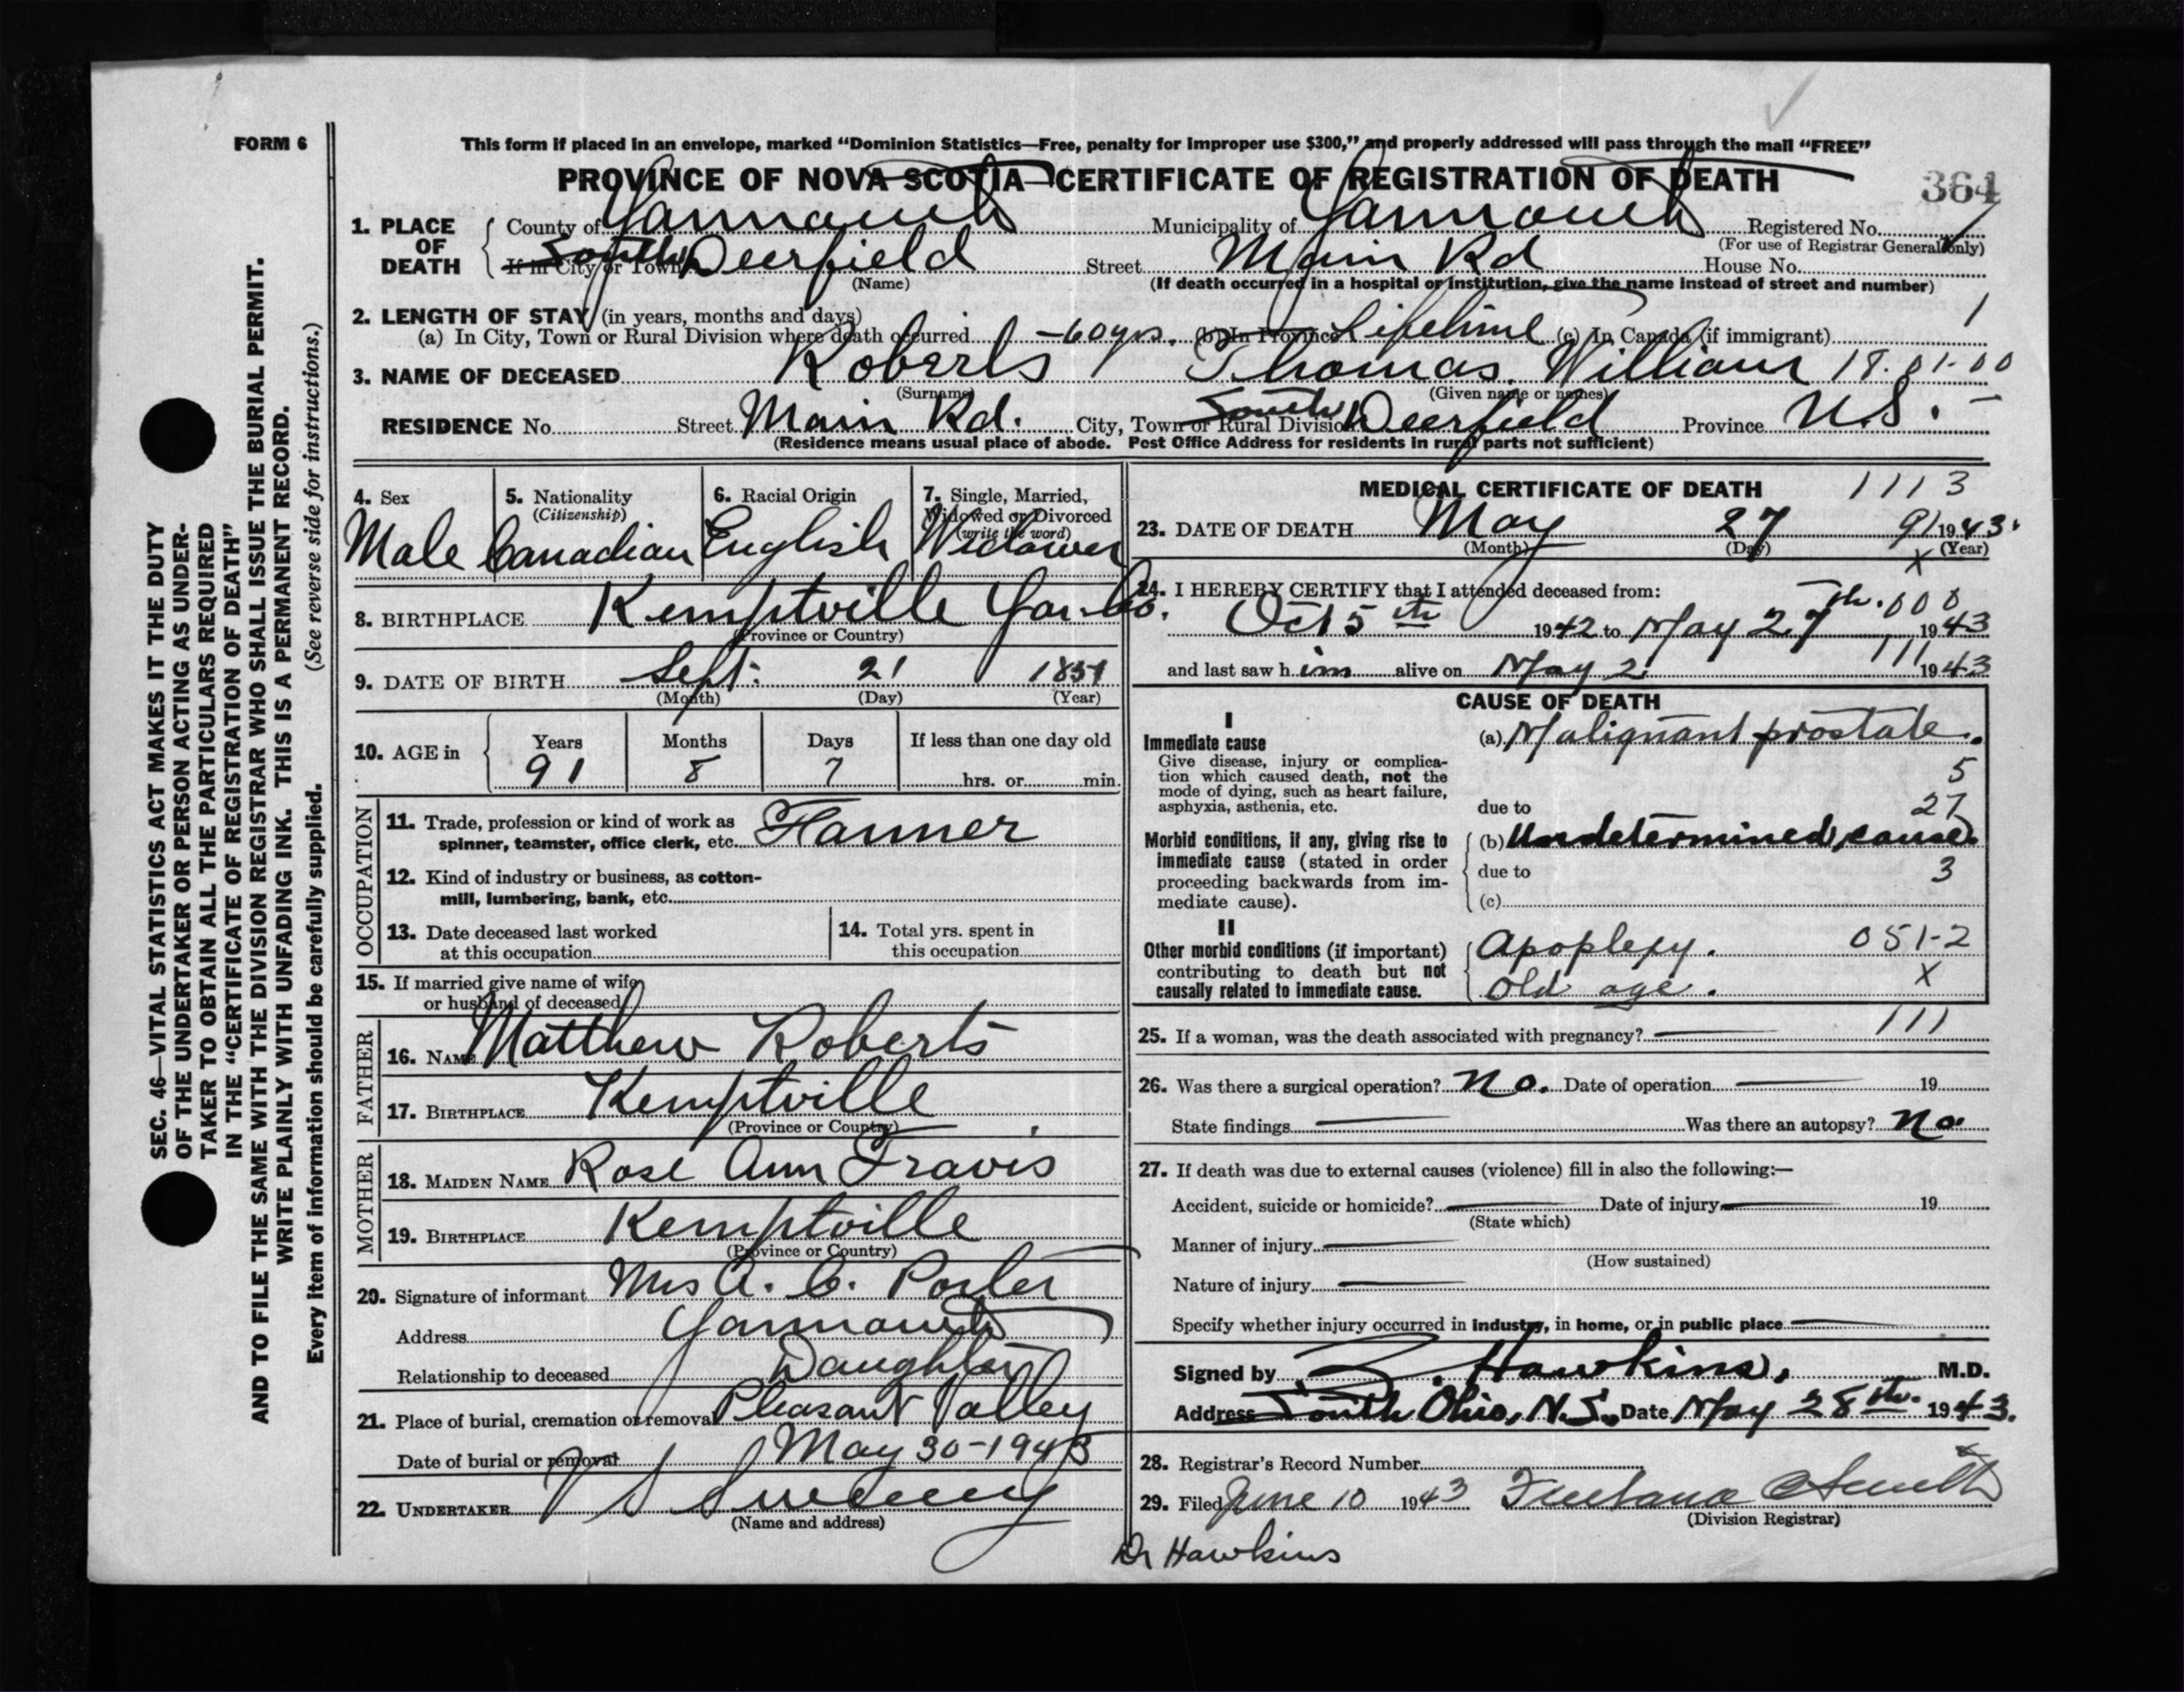 FORM 6
This form if placed in an envelope, marked "Dominion Statistics—Free, penalty for improper use $300," and properly addressed will pass through the mail "FREE"
PROVINCE OF NOVA SCOTIA—CERTIFICATE OF REGISTRATION OF DEATH
364
1. PLACE OF DEATH County of Yarmouth Municipality of Yarmouth Registered No.
(For use of Registrar General only)
If in City or Town South Deerfield Street Main Rd House No.
(Name) (If death occurred in a hospital or institution, give the name instead of street and number)
2. LENGTH OF STAY (in years, months and days) 1
(a) In City, Town or Rural Division where death occurred 60 yrs. (b) In Province Lifetime (c) In Canada (if immigrant)
3. NAME OF DECEASED Roberts Thomas William 18.01-00
(Surname) (Given name or names)
RESIDENCE No. Street Main Rd. City, Town or Rural Division South Deerfield Province N.S. -
(Residence means usual place of abode. Post Office Address for residents in rural parts not sufficient)
4. Sex Male
5. Nationality (Citizenship) Canadian
6. Racial Origin English
7. Single, Married, Widowed or Divorced (write the word) Widower
8. BIRTHPLACE Kemptville Yar. Co.
(Province or Country)
9. DATE OF BIRTH Sept. 21
(Month) (Day) (Year)
10. AGE in Years Months Days If less than one day old
91 8 7 hrs. or min.
OCCUPATION
11. Trade, profession or kind of work as
spinner, teamster, office clerk, etc. Farmer
12. Kind of industry or business, as cotton-
mill, lumbering, bank, etc.
13. Date deceased last worked
at this occupation
14. Total yrs. spent in
this occupation
15. If married give name of wife
or husband of deceased
FATHER
16. NAME Matthew Roberts
17. BIRTHPLACE Kemptville
(Province or Country)
MOTHER
18. MAIDEN NAME Rose Ann Travis
19. BIRTHPLACE Kemptville
(Province or Country)
20. Signature of informant Mrs A. C. Porter
Address Yarmouth
Relationship to deceased Daughter
21. Place of burial, cremation or removal Pleasant Valley
Date of burial or removal May 30-1943
22. UNDERTAKER V S Sweeny
(Name and address)
MEDICAL CERTIFICATE OF DEATH 1113
23. DATE OF DEATH May 27 91 1943.
(Month) (Day) x (Year)
24. I HEREBY CERTIFY that I attended deceased from:
Oct 5th 1942 to May 27th. 000 1943
and last saw him alive on May 2 111 1943
CAUSE OF DEATH
I
Immediate cause
Give disease, injury or complica-
tion which caused death, not the
mode of dying, such as heart failure,
asphyxia, asthenia, etc.
(a) Malignant prostate.
5
due to 27
Morbid conditions, if any, giving rise to
immediate cause (stated in order
proceeding backwards from im-
mediate cause).
(b) Undetermined cause.
due to 3
(c)
II
Other morbid conditions (if important)
contributing to death but not
causally related to immediate cause.
Apoplexy. 051-2
Old age. x
25. If a woman, was the death associated with pregnancy? — 111
26. Was there a surgical operation? No. Date of operation — 19
State findings — Was there an autopsy? No.
27. If death was due to external causes (violence) fill in also the following:—
Accident, suicide or homicide? — Date of injury — 19
(State which)
Manner of injury —
(How sustained)
Nature of injury —
Specify whether injury occurred in industry, in home, or in public place —
Signed by Z. Hawkins, M.D.
Address South Ohio, N.S. Date May 28th. 1943.
28. Registrar's Record Number
29. Filed June 10 1943
(Division Registrar)
Dr Hawkins
SEC. 46—VITAL STATISTICS ACT MAKES IT THE DUTY
OF THE UNDERTAKER OR PERSON ACTING AS UNDER-
TAKER TO OBTAIN ALL THE PARTICULARS REQUIRED
IN THE "CERTIFICATE OF REGISTRATION OF DEATH"
AND TO FILE THE SAME WITH THE DIVISION REGISTRAR WHO SHALL ISSUE THE BURIAL PERMIT.
WRITE PLAINLY WITH UNFADING INK. THIS IS A PERMANENT RECORD.
Every item of information should be carefully supplied. (See reverse side for instructions.)